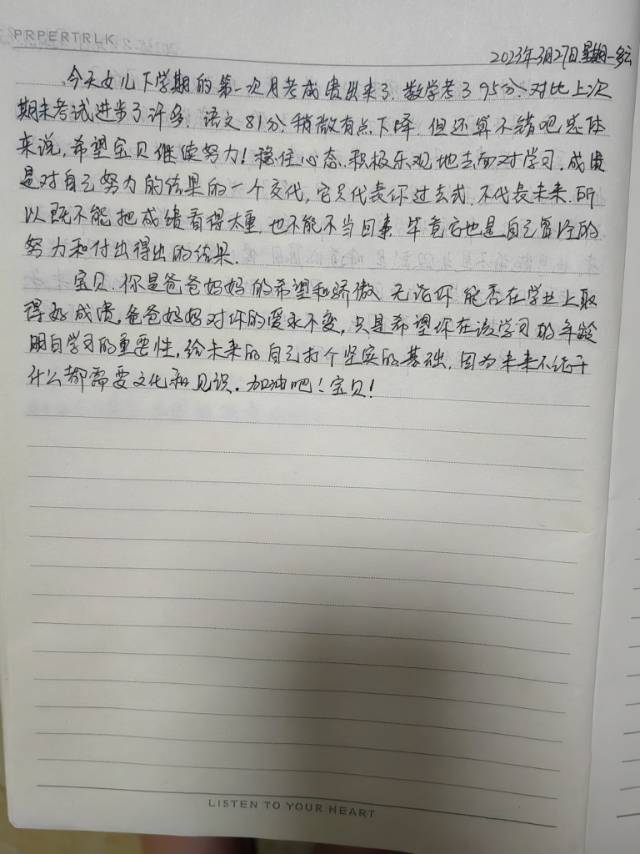 PRPERTRLK
2023年3月27日 星期一 多云
今天女儿下学期的第一次月考成绩出来了.数学考了95分、对比上次
期末考试进步了许多.语文81分、稍微有点下降.但还算不错吧总体
来说,希望宝贝继续努力!稳住心态、积极乐观地去面对学习.成绩
是对自己努力的结果的一个交代,它只代表你过去式.不代表未来.所
以既不能把成绩看得太重.也不能不当回事.毕竟它也是自己曾经的
努力和付出得出的结果.
宝贝.你是爸爸妈妈的希望和骄傲.无论你能否在学业上取
得好成绩,爸爸妈妈对你的爱永不变,只是希望你在该学习的年龄
明白学习的重要性,给未来的自己打个坚实的基础.因为未来不论干
什么都需要文化和见识.加油吧!宝贝!
LISTEN TO YOUR HEART